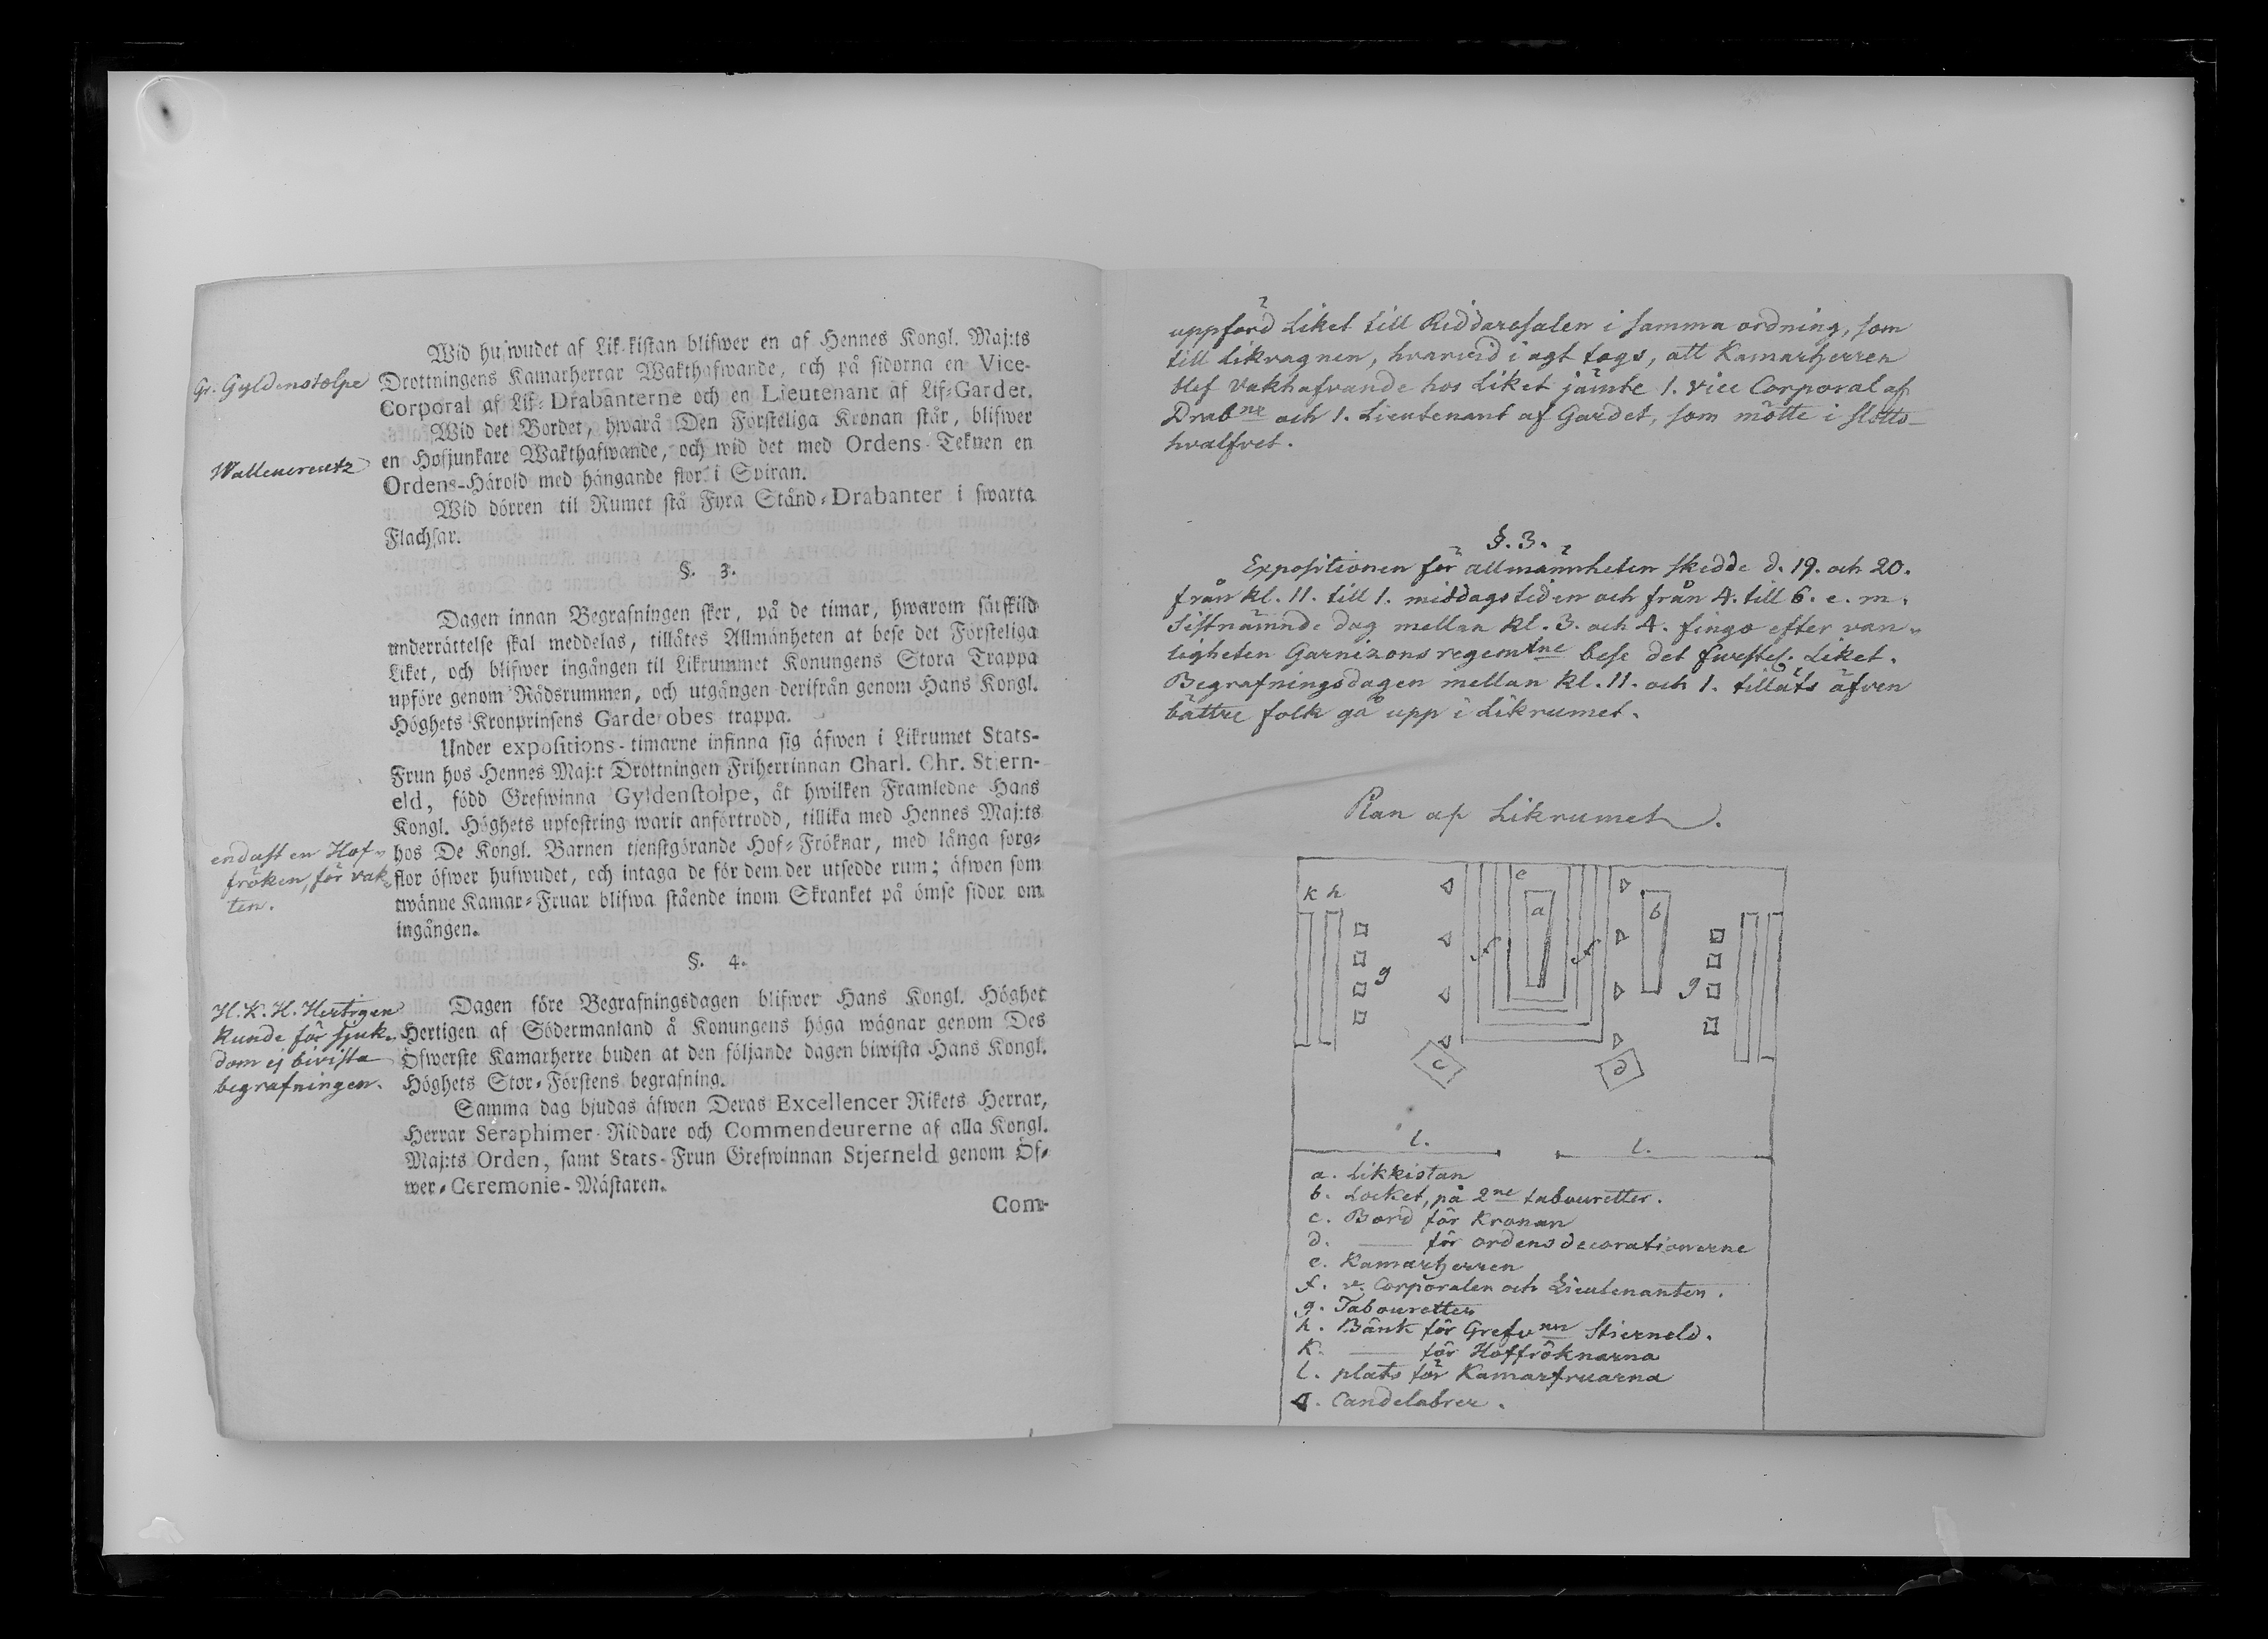 Wid hufwudet af Lik-kistan blifwer en af Hennes Kongl. Maj:ts
Gr. Gyldenstolpe
Drottningens Kamarherrar Wakthafwande, och på sidorna en Vice-
Corporal af Lif-Drabanterne och en Lieutenant af Lif-Gardet.
Wid det Bordet, hwarå Den Försteliga Kronan står, blifwer
Wallencreutz
en Hofjunkare Wakthafwande, och wid det med Ordens-Teknen en
Ordens-Härold med hängande flor i Spiran.
Wid dörren til Rumet stå Fyra Stånd-Drabanter i swarta
Flachsar.
§. 3.
Dagen innan Begrafningen sker, på de timar, hwarom särskild
underrättelse skal meddelas, tillåtes Allmänheten at bese det Försteliga
Liket, och blifwer ingången til Likrummet Konungens Stora Trappa
upföre genom Rådsrummen, och utgången derifrån genom Hans Kongl.
Höghets Kronprinsens Garderobes trappa.
Under expositions-timarne infinna sig äfwen i Likrumet Stats-
Frun hos Hennes Maj:t Drottningen Friherrinnan Charl. Chr. Stjern-
eld, född Grefwinna Gyldenstolpe, åt hwilken Framledne Hans
Kongl. Höghets upfostring warit anförtrodd, tillika med Hennes Maj:ts
endast en Hof-
fröken, för vak-
ten.
hos De Kongl. Barnen tjenstgörande Hof-Fröknar, med långa sorg-
flor öfwer hufwudet, och intaga de för dem der utsedde rum; äfwen som
twänne Kamar-Fruar blifwa stående inom Skranket på ömse sidor om
ingången.
§. 4.
H. K. H. Hertigen
kunde för sjuk-
dom ej bivista
begrafningen.
Dagen före Begrafningsdagen blifwer Hans Kongl. Höghet
Hertigen af Södermanland å Konungens höga wägnar genom Des
Öfwerste Kamarherre buden at den följande dagen biwista Hans Kongl.
Höghets Stor-Förstens begrafning.
Samma dag bjudas äfwen Deras Excellencer Rikets Herrar,
Herrar Seraphimer-Riddare och Commendeurerne af alla Kongl.
Maj:ts Orden, samt Stats-Frun Grefwinnan Stjerneld genom Öf-
wer-Ceremonie-Mästaren.
Com-
uppförd Liket till Riddaresalen i samma ordning, som
till Likvagnen, hvarvid i agt togs, att Kamarherren
blef vakthafvande hos Liket jämte 1. vice Corporal af
Drabne och 1. Lieutenant af Gardet, som mötte i Slotts-
hvalfvet.
§. 3.
Expositionen för allmännheten skedde d. 19. och 20.
från kl. 11. till 1. middagstiden och från 4. till 6. e. m.
Sistnämnde dag mellan kl. 3. och 4. fingo efter van-
ligheten Garnizonsregemtne bese det furstel: Liket.
Begrafningsdagen mellan kl. 11. och 1. tilläts äfven
bättre folk gå upp i Likrumet.
Plan af Likrumet.
k h e a b
f f
g g
c d
l. l.
a. Likkistan
b. Locket, på 2ne tabouretter.
c. Bord för Kronan
d. —— för ordensdecorationerne
e. Kamarherren
f. v. Corporalen och Lieutenanten.
g. Tabouretter
h. Bänk för Grefvnn Stierneld.
k. —— för Hoffröknarna
l. plats för Kamarfruarna
Δ. Candelabrer.